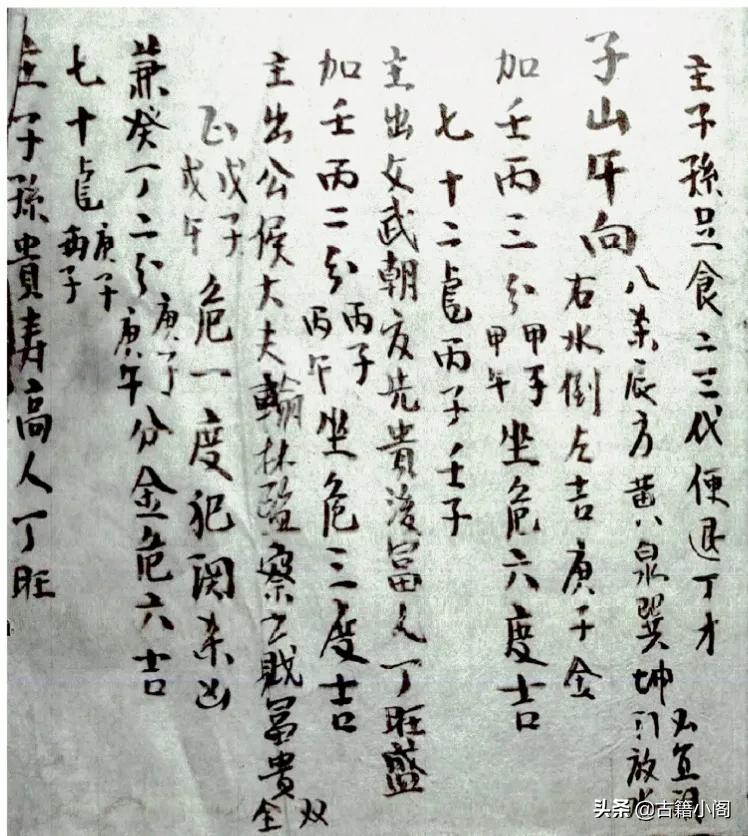 主子孫足食二三代便退丁才
子山午向
八杀辰方黄泉巽坤门放水
右水倒左吉庚子金
加壬丙三分甲子甲午坐危六度吉
七十二龍丙子壬子
主出文武朝友先貴後富人丁旺盛
加壬丙二分丙子丙午坐危三度吉
主出公侯大夫翰林監察富貴双全
正戊子戊午危一度犯関杀凶
兼癸丁二分庚子庚午分金危六吉
七十龍庚子丙子
主子孫貴寿高人丁旺
头条@古籍小阁